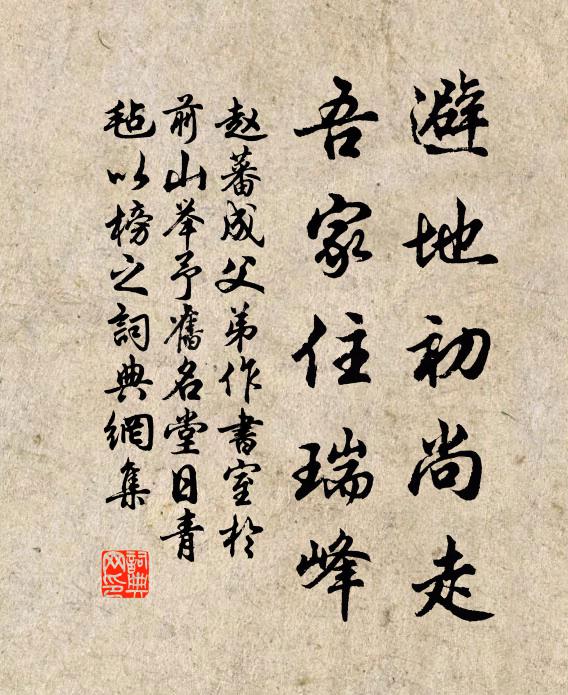 避地初尚走
吾家住瑞峰
赵蕃成父弟作書室於
前山举予舊名堂日青
毡以榜之詞典網集
詞典网印